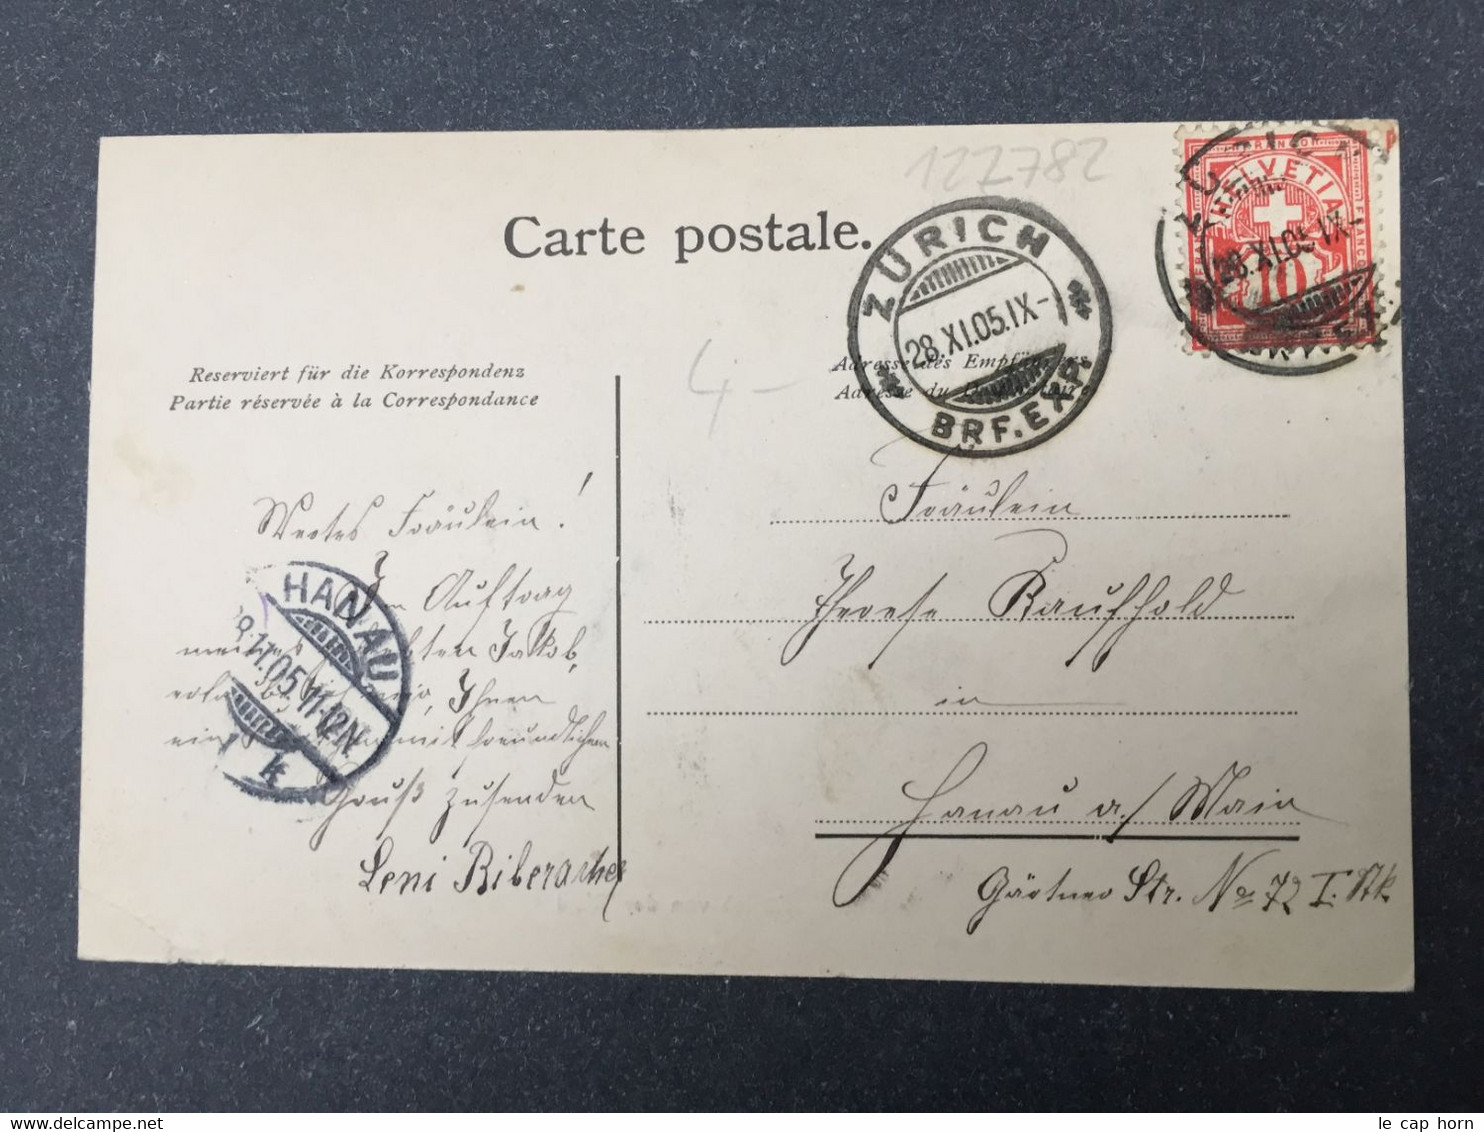 122782
Carte postale.
ZÜRICH
28.XI.05.IX-
BRF.EXP.
FRANCO
HELVETIA
10
28.XI.05.IX-
Reserviert für die Korrespondenz
Partie réservée à la Correspondance
Adresse des Empfängers
Adresse du
4-
Wertes Fräulein!
Im Auftrag
Jakob,
Ihnen
mit freundlichem
Gruß zusenden
Leni Biberacher
HANAU
11.05.11-12N
k
Fräulein
Therese Kauffhold
in
Hanau a/Main
Gärtner Str. No 72 I. Stk
le cap horn